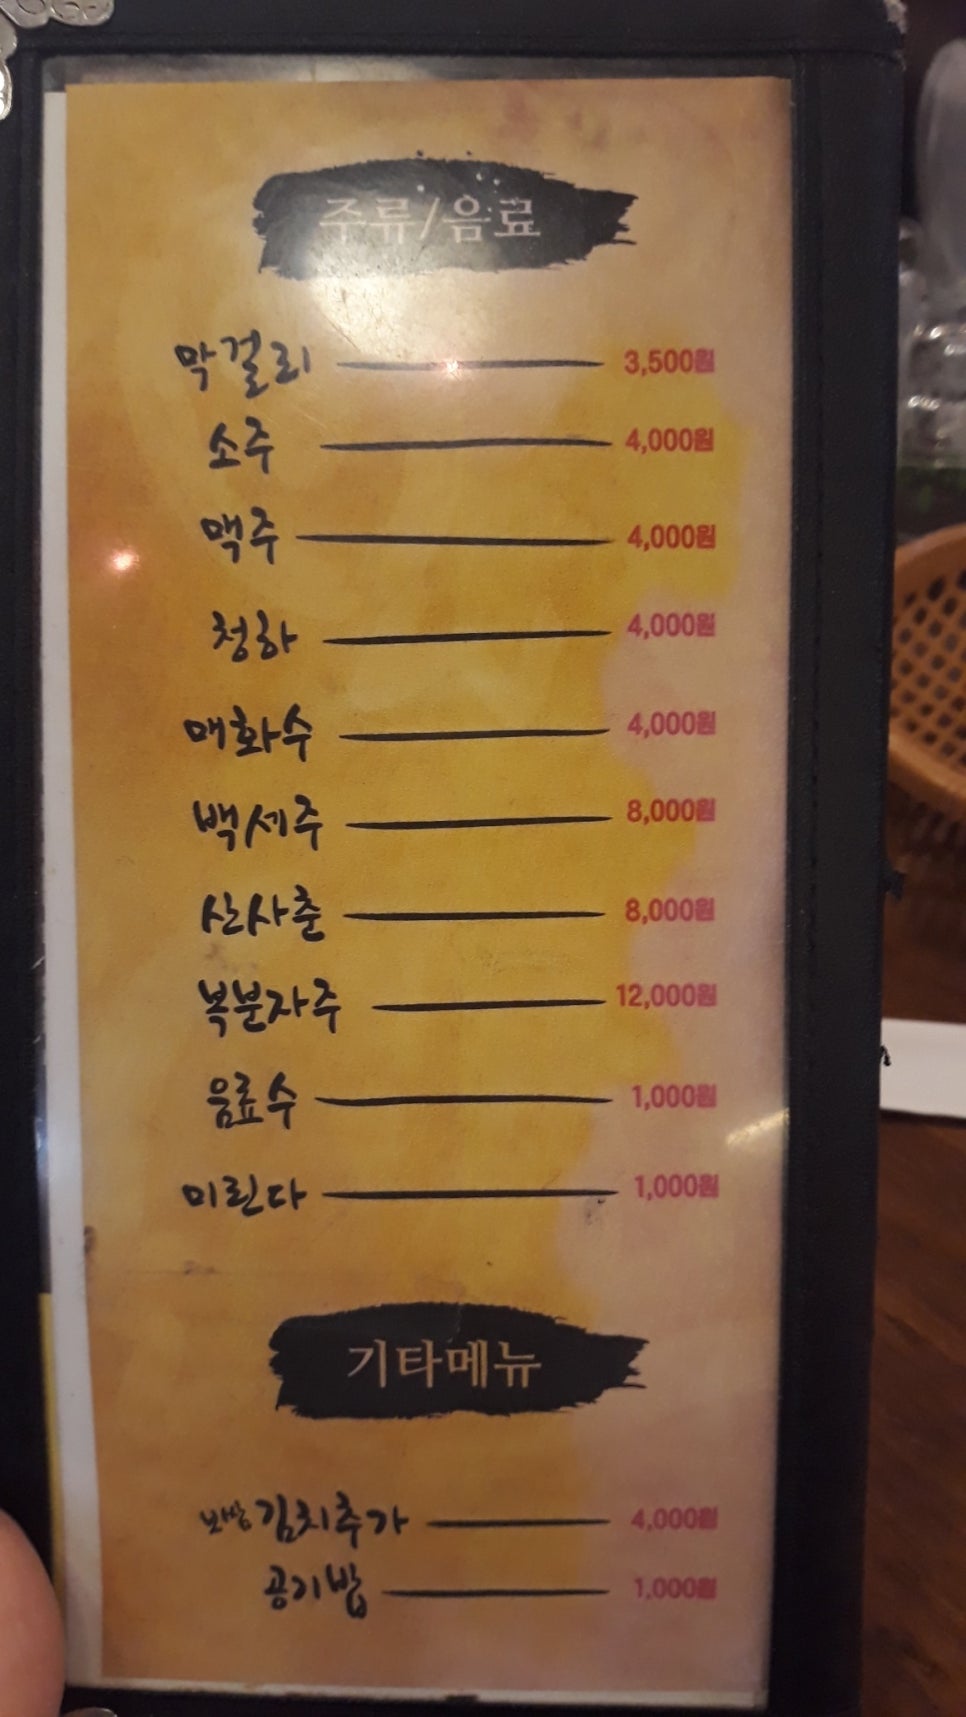 주류/음료
막걸리 3,500원
소주 4,000원
맥주 4,000원
청하 4,000원
매화수 4,000원
백세주 8,000원
산사춘 8,000원
복분자주 12,000원
음료수 1,000원
미린다 1,000원
기타메뉴
보쌈김치추가 4,000원
공기밥 1,000원